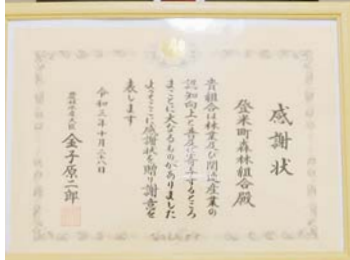 感謝状
登米町森林組合殿
貴組合は林業及び関連産業の
認知向上と普及に寄与するところ
まことに大なるものがありました
よってここに感謝状を贈り謝意を
表します
令和三年十月二十八日
農林水産大臣 金子原二郎